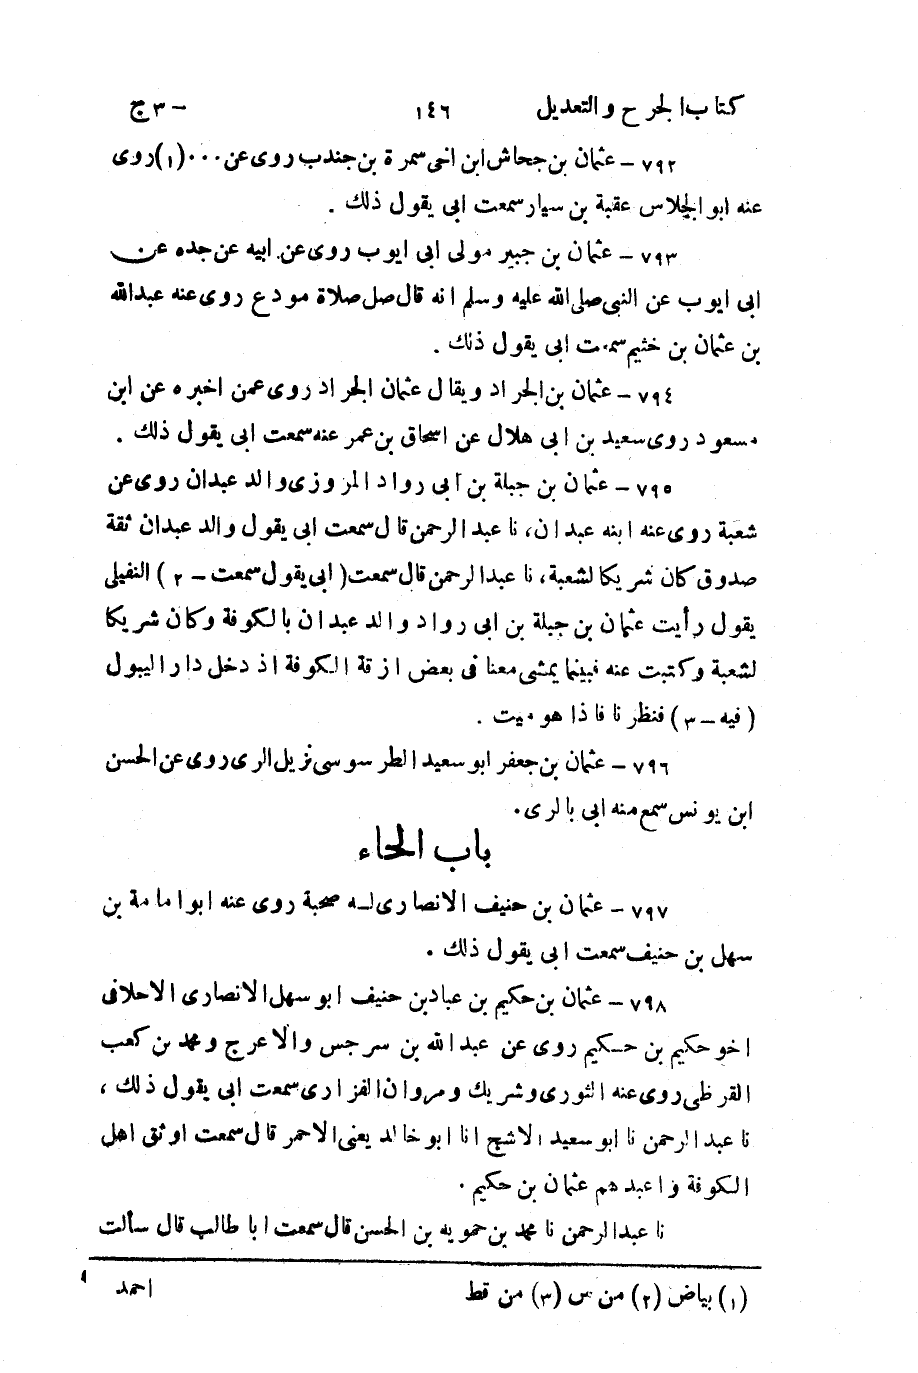 كتاب الجرح والتعديل ١٤٦ ج ٣ -
٧٩٢ - عثمان بن جحاش ابن اخى سمرة بن جندب روى عن ٠٠٠ (١) روى
عنه ابو الجلاس عقبة بن سيار سمعت ابى يقول ذلك .
٧٩٣ - عثمان بن جبير مولى ابى ايوب روى عن ابيه عن جده عن
ابى ايوب عن النبى صلى الله عليه وسلم انه قال صل صلاة مودع روى عنه عبد الله
بن عثمان بن خثيم سمعت ابى يقول ذلك .
٧٩٤ - عثمان بن الجراد ويقال عثمان الجراد روى عمن اخبره عن ابن
مسعود روى سعيد بن ابى هلال عن اسحاق بن عمر عنه سمعت ابى يقول ذلك .
٧٩٥ - عثمان بن جبلة بن ابى رواد المروزى والد عبدان روى عن
شعبة روى عنه ابنه عبدان، نا عبد الرحمن قال سمعت ابى يقول والد عبدان ثقة
صدوق كان شريكا لشعبة، نا عبد الرحمن قال سمعت (ابى يقول سمعت - ٢) النفيلى
يقول رأيت عثمان بن جبلة بن ابى رواد والد عبدان بالكوفة وكان شريكا
لشعبة وكتبت عنه فبينما يمشى معنا فى بعض ازقة الكوفة اذ دخل دار اليبول
(فيه - ٣) فنظرنا فاذا هو ميت .
٧٩٦ - عثمان بن جعفر ابو سعيد الطرسوسى نزيل الرى روى عن الحسن
ابن يونس سمع منه ابى بالرى.
باب الحاء
٧٩٧ - عثمان بن حنيف الانصارى له صحبة روى عنه ابو امامة بن
سهل بن حنيف سمعت ابى يقول ذلك .
٧٩٨ - عثمان بن حكيم بن عباد بن حنيف ابو سهل الانصارى الاحلافى
اخو حكيم بن حكيم روى عن عبد الله بن سرجس والاعرج ومحمد بن كعب
القرظى روى عنه الثورى وشريك ومروان الفزارى سمعت ابى يقول ذلك ،
نا عبد الرحمن نا ابو سعيد الاشج انا ابو خالد يعنى الاحمر قال سمعت اوثق اهل
الكوفة واعبدهم عثمان بن حكيم .
نا عبد الرحمن نا محمد بن حمويه بن الحسن قال سمعت ابا طالب قال سألت
(١) بياض (٢) من س (٣) من قط احمد